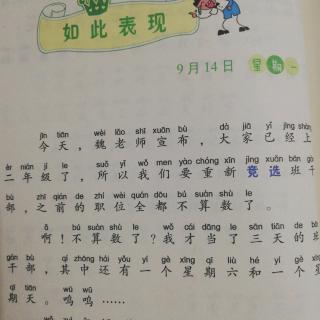 如此表现
9月14日 星期一
jīn tiān wèi lǎo shī xuān bù dà jiā yǐ jīng shàng
今天，魏老师宣布，大家已经上
èr nián jí le suǒ yǐ wǒ men yào chóng xīn jìng xuǎn bān gàn
二年级了，所以我们要重新竞选班干
bù zhī qián de zhí wèi quán dōu bú suàn shù le
部，之前的职位全都不算数了。
ō bú suàn shù le wǒ cái dāng le sān tiān de bān
啊！不算数了？我才当了三天的班
gàn bù qí zhōng hái yǒu yí gè xīng qī liù hé yí gè xīng
干部，其中还有一个星期六和一个星
qī tiān wū wū
期天。呜呜……